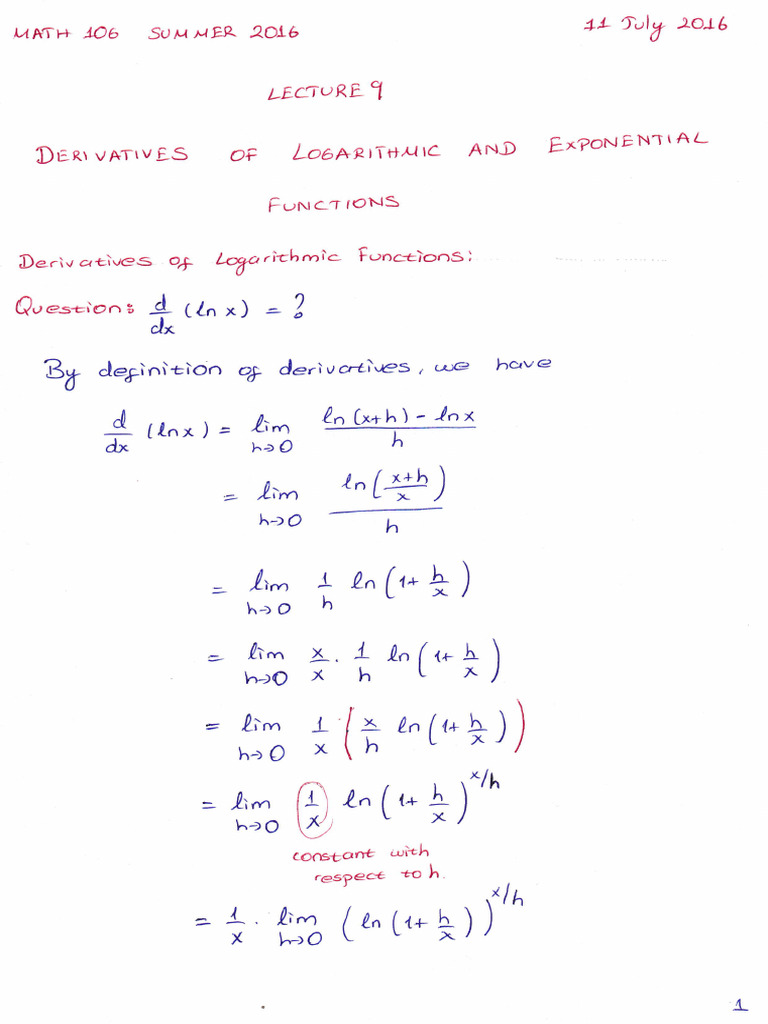 MATH 106 SUMMER 2016 11 July 2016
LECTURE 9
DERIVATIVES OF LOGARITHMIC AND EXPONENTIAL
FUNCTIONS
Derivatives of Logarithmic Functions:
Question: d/dx (ln x) = ?
By definition of derivatives, we have
d/dx (ln x) = lim h→0 (ln(x+h) - ln x)/h
= lim h→0 ln((x+h)/x)/h
= lim h→0 1/h ln(1+ h/x)
= lim h→0 x/x · 1/h ln(1+ h/x)
= lim h→0 1/x (x/h ln(1+ h/x))
= lim h→0 1/x ln(1+ h/x)^(x/h)
constant with
respect to h.
= 1/x · lim h→0 (ln(1+ h/x))^(x/h)
1